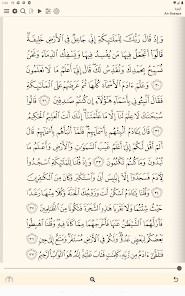 Al-Baqara
وَإِذْ قَالَ رَبُّكَ لِلْمَلَٰٓئِكَةِ إِنِّى جَاعِلٌ فِى ٱلْأَرْضِ خَلِيفَةً
قَالُوٓا۟ أَتَجْعَلُ فِيهَا مَن يُفْسِدُ فِيهَا وَيَسْفِكُ ٱلدِّمَآءَ وَنَحْنُ
نُسَبِّحُ بِحَمْدِكَ وَنُقَدِّسُ لَكَ قَالَ إِنِّىٓ أَعْلَمُ مَا لَا تَعْلَمُونَ ٣٠
وَعَلَّمَ ءَادَمَ ٱلْأَسْمَآءَ كُلَّهَا ثُمَّ عَرَضَهُمْ عَلَى ٱلْمَلَٰٓئِكَةِ
فَقَالَ أَنۢبِـُٔونِى بِأَسْمَآءِ هَٰٓؤُلَآءِ إِن كُنتُمْ صَٰدِقِينَ ٣١ قَالُوا۟
سُبْحَٰنَكَ لَا عِلْمَ لَنَآ إِلَّا مَا عَلَّمْتَنَآ إِنَّكَ أَنتَ ٱلْعَلِيمُ ٱلْحَكِيمُ ٣٢
قَالَ يَٰٓـَٔادَمُ أَنۢبِئْهُم بِأَسْمَآئِهِمْ فَلَمَّآ أَنۢبَأَهُم بِأَسْمَآئِهِمْ قَالَ
أَلَمْ أَقُل لَّكُمْ إِنِّىٓ أَعْلَمُ غَيْبَ ٱلسَّمَٰوَٰتِ وَٱلْأَرْضِ وَأَعْلَمُ مَا
تُبْدُونَ وَمَا كُنتُمْ تَكْتُمُونَ ٣٣ وَإِذْ قُلْنَا لِلْمَلَٰٓئِكَةِ ٱسْجُدُوا۟
لِـَٔادَمَ فَسَجَدُوٓا۟ إِلَّآ إِبْلِيسَ أَبَىٰ وَٱسْتَكْبَرَ وَكَانَ مِنَ ٱلْكَٰفِرِينَ
٣٤ وَقُلْنَا يَٰٓـَٔادَمُ ٱسْكُنْ أَنتَ وَزَوْجُكَ ٱلْجَنَّةَ وَكُلَا مِنْهَا رَغَدًا
حَيْثُ شِئْتُمَا وَلَا تَقْرَبَا هَٰذِهِ ٱلشَّجَرَةَ فَتَكُونَا مِنَ ٱلظَّٰلِمِينَ ٣٥
فَأَزَلَّهُمَا ٱلشَّيْطَٰنُ عَنْهَا فَأَخْرَجَهُمَا مِمَّا كَانَا فِيهِ وَقُلْنَا ٱهْبِطُوا۟
بَعْضُكُمْ لِبَعْضٍ عَدُوٌّ وَلَكُمْ فِى ٱلْأَرْضِ مُسْتَقَرٌّ وَمَتَٰعٌ إِلَىٰ حِينٍ
٣٦ فَتَلَقَّىٰٓ ءَادَمُ مِن رَّبِّهِۦ كَلِمَٰتٍ فَتَابَ عَلَيْهِ إِنَّهُۥ هُوَ ٱلتَّوَّابُ ٱلرَّحِيمُ ٣٧